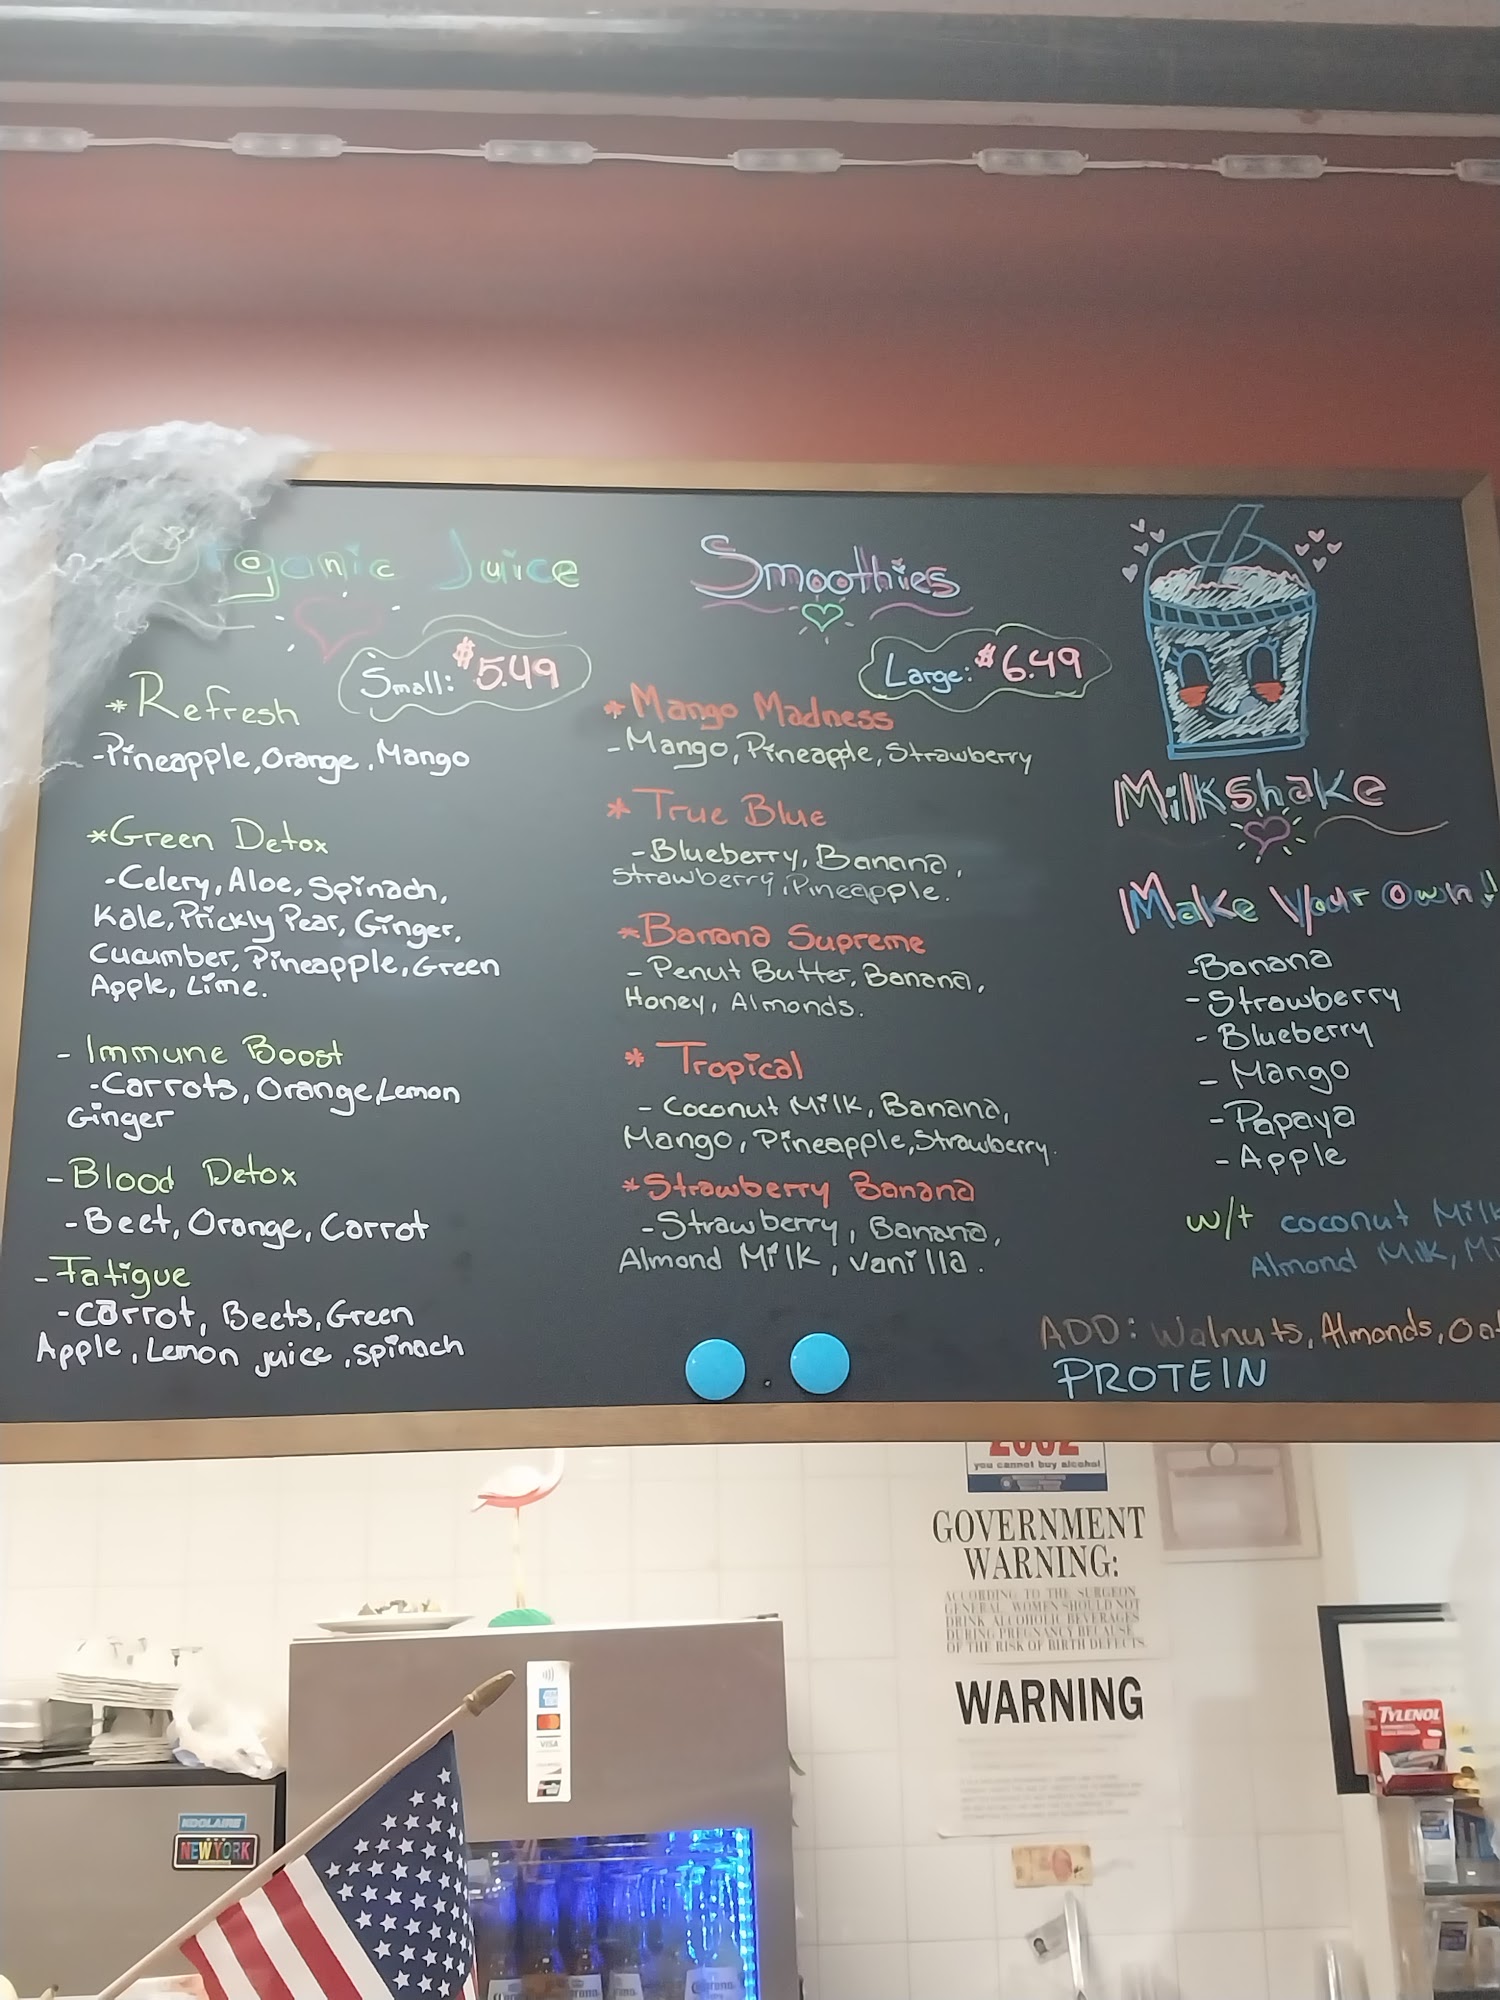 Organic Juice
Small: $5.49
*Refresh
-Pineapple, Orange, Mango
*Green Detox
-Celery, Aloe, Spinach,
Kale, Prickly Pear, Ginger,
Cucumber, Pineapple, Green
Apple, Lime.
- Immune Boost
-Carrots, Orange, Lemon
Ginger
-Blood Detox
-Beet, Orange, Carrot
-Fatigue
-Carrot, Beets, Green
Apple, Lemon juice, spinach
Smoothies
Large: $6.49
*Mango Madness
-Mango, Pineapple, Strawberry
* True Blue
-Blueberry, Banana,
Strawberry, Pineapple.
*Banana Supreme
- Penut Butter, Banana,
Honey, Almonds.
* Tropical
- Coconut Milk, Banana,
Mango, Pineapple, Strawberry.
*Strawberry Banana
-Strawberry, Banana,
Almond Milk, Vanilla.
Milkshake
Make Your Own!!
-Banana
-Strawberry
- Blueberry
- Mango
-Papaya
-Apple
w/t coconut Milk
Almond Milk, Mi
ADD: Walnuts, Almonds, Oat
PROTEIN
2002
you cannot buy alcohol
GOVERNMENT
WARNING:
ACCORDING TO THE SURGEON
GENERAL, WOMEN SHOULD NOT
DRINK ALCOHOLIC BEVERAGES
DURING PREGNANCY BECAUSE
OF THE RISK OF BIRTH DEFECTS.
WARNING
TYLENOL
VISA
KOOLAIRE
NEW YORK
Corona